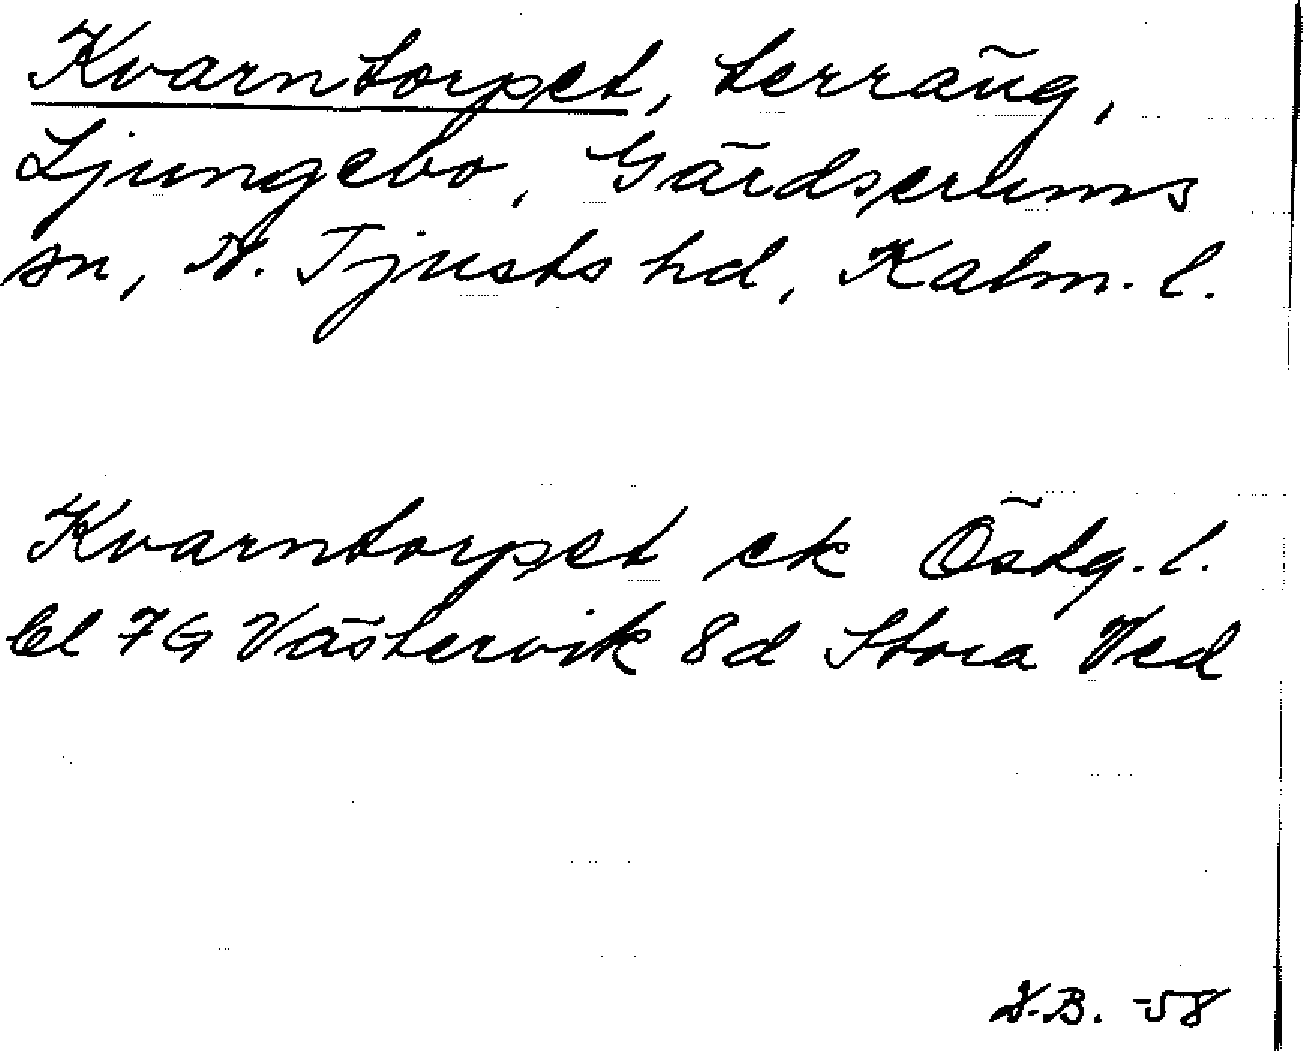 Kvarntorpet, terräng,
Ljungebo, Gärdserums
sn, N. Tjusts hd, Kalm. l.
Kvarntorpet ek Östg. l.
bl 7G Västervik 8d Stora Ved
N.B. -58